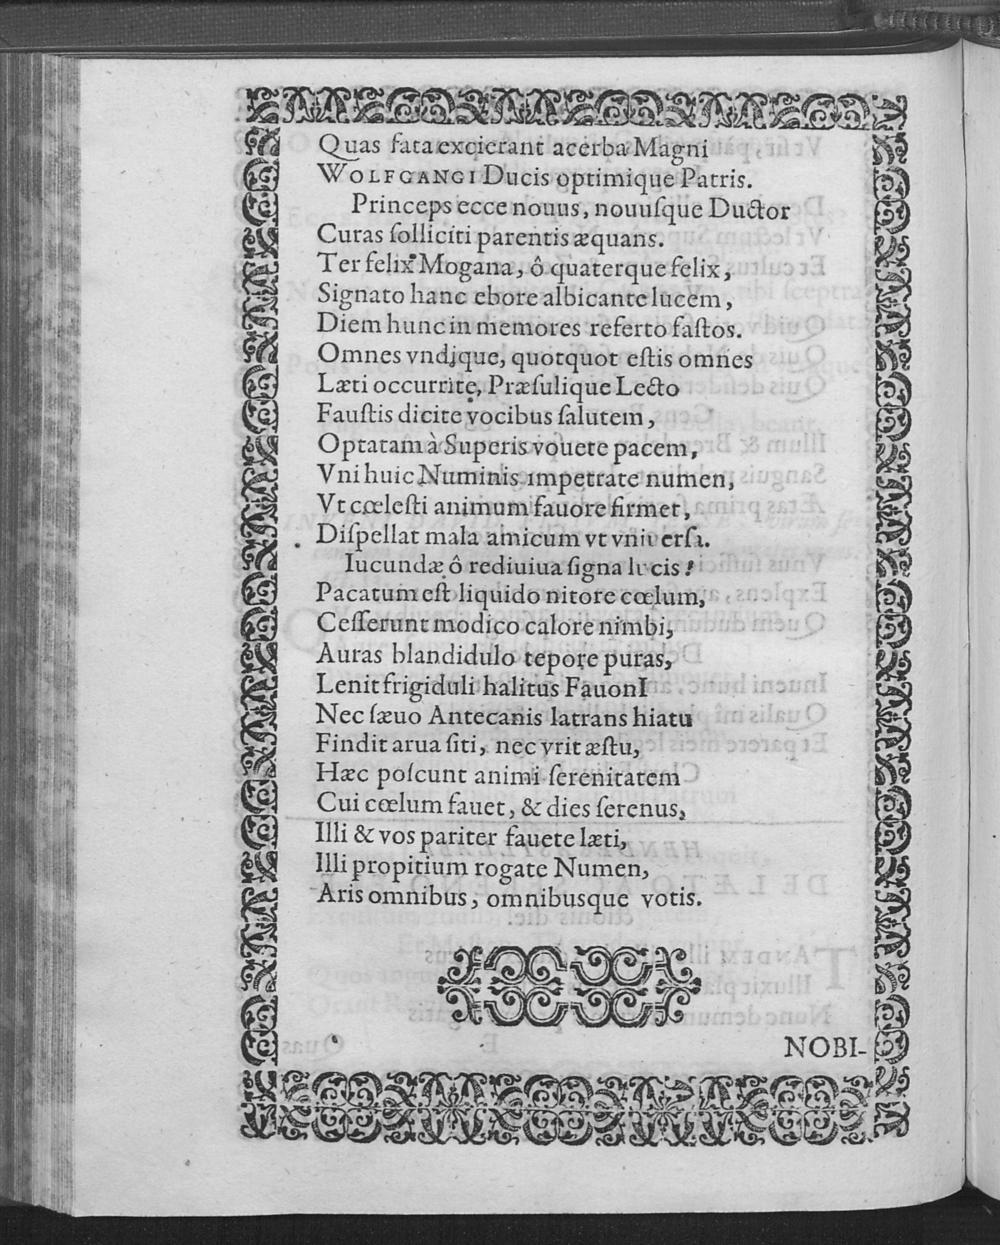 Quas fata excierant acerba Magni
WOLFGANGI Ducis optimique Patris.
Princeps ecce nouus, nouuſque Ductor
Curas ſolliciti parentis æquans.
Ter felix Mogana, ô quaterque felix,
Signato hanc ebore albicante lucem,
Diem hunc in memores referto faſtos.
Omnes vndique, quotquot eſtis omnes
Læti occurrite, Præſulique Lecto
Fauſtis dicite vocibus ſalutem,
Optatam à Superis vouete pacem,
Vni huic Numinis impetrate numen,
Vt cœleſti animum fauore firmet,
Diſpellat mala amicum vt vniverſa.
Iucundæ ô rediuiua ſigna lucis!
Pacatum eſt liquido nitore cœlum,
Ceſſerunt modico calore nimbi,
Auras blandidulo tepore puras,
Lenit frigiduli halitus FauonI
Nec ſæuo Antecanis latrans hiatu
Findit arua ſiti, nec vrit æſtu,
Hæc poſcunt animi ſerenitatem
Cui cœlum fauet, & dies ſerenus,
Illi & vos pariter fauete læti,
Illi propitium rogate Numen,
Aris omnibus, omnibusque votis.
NOBI-